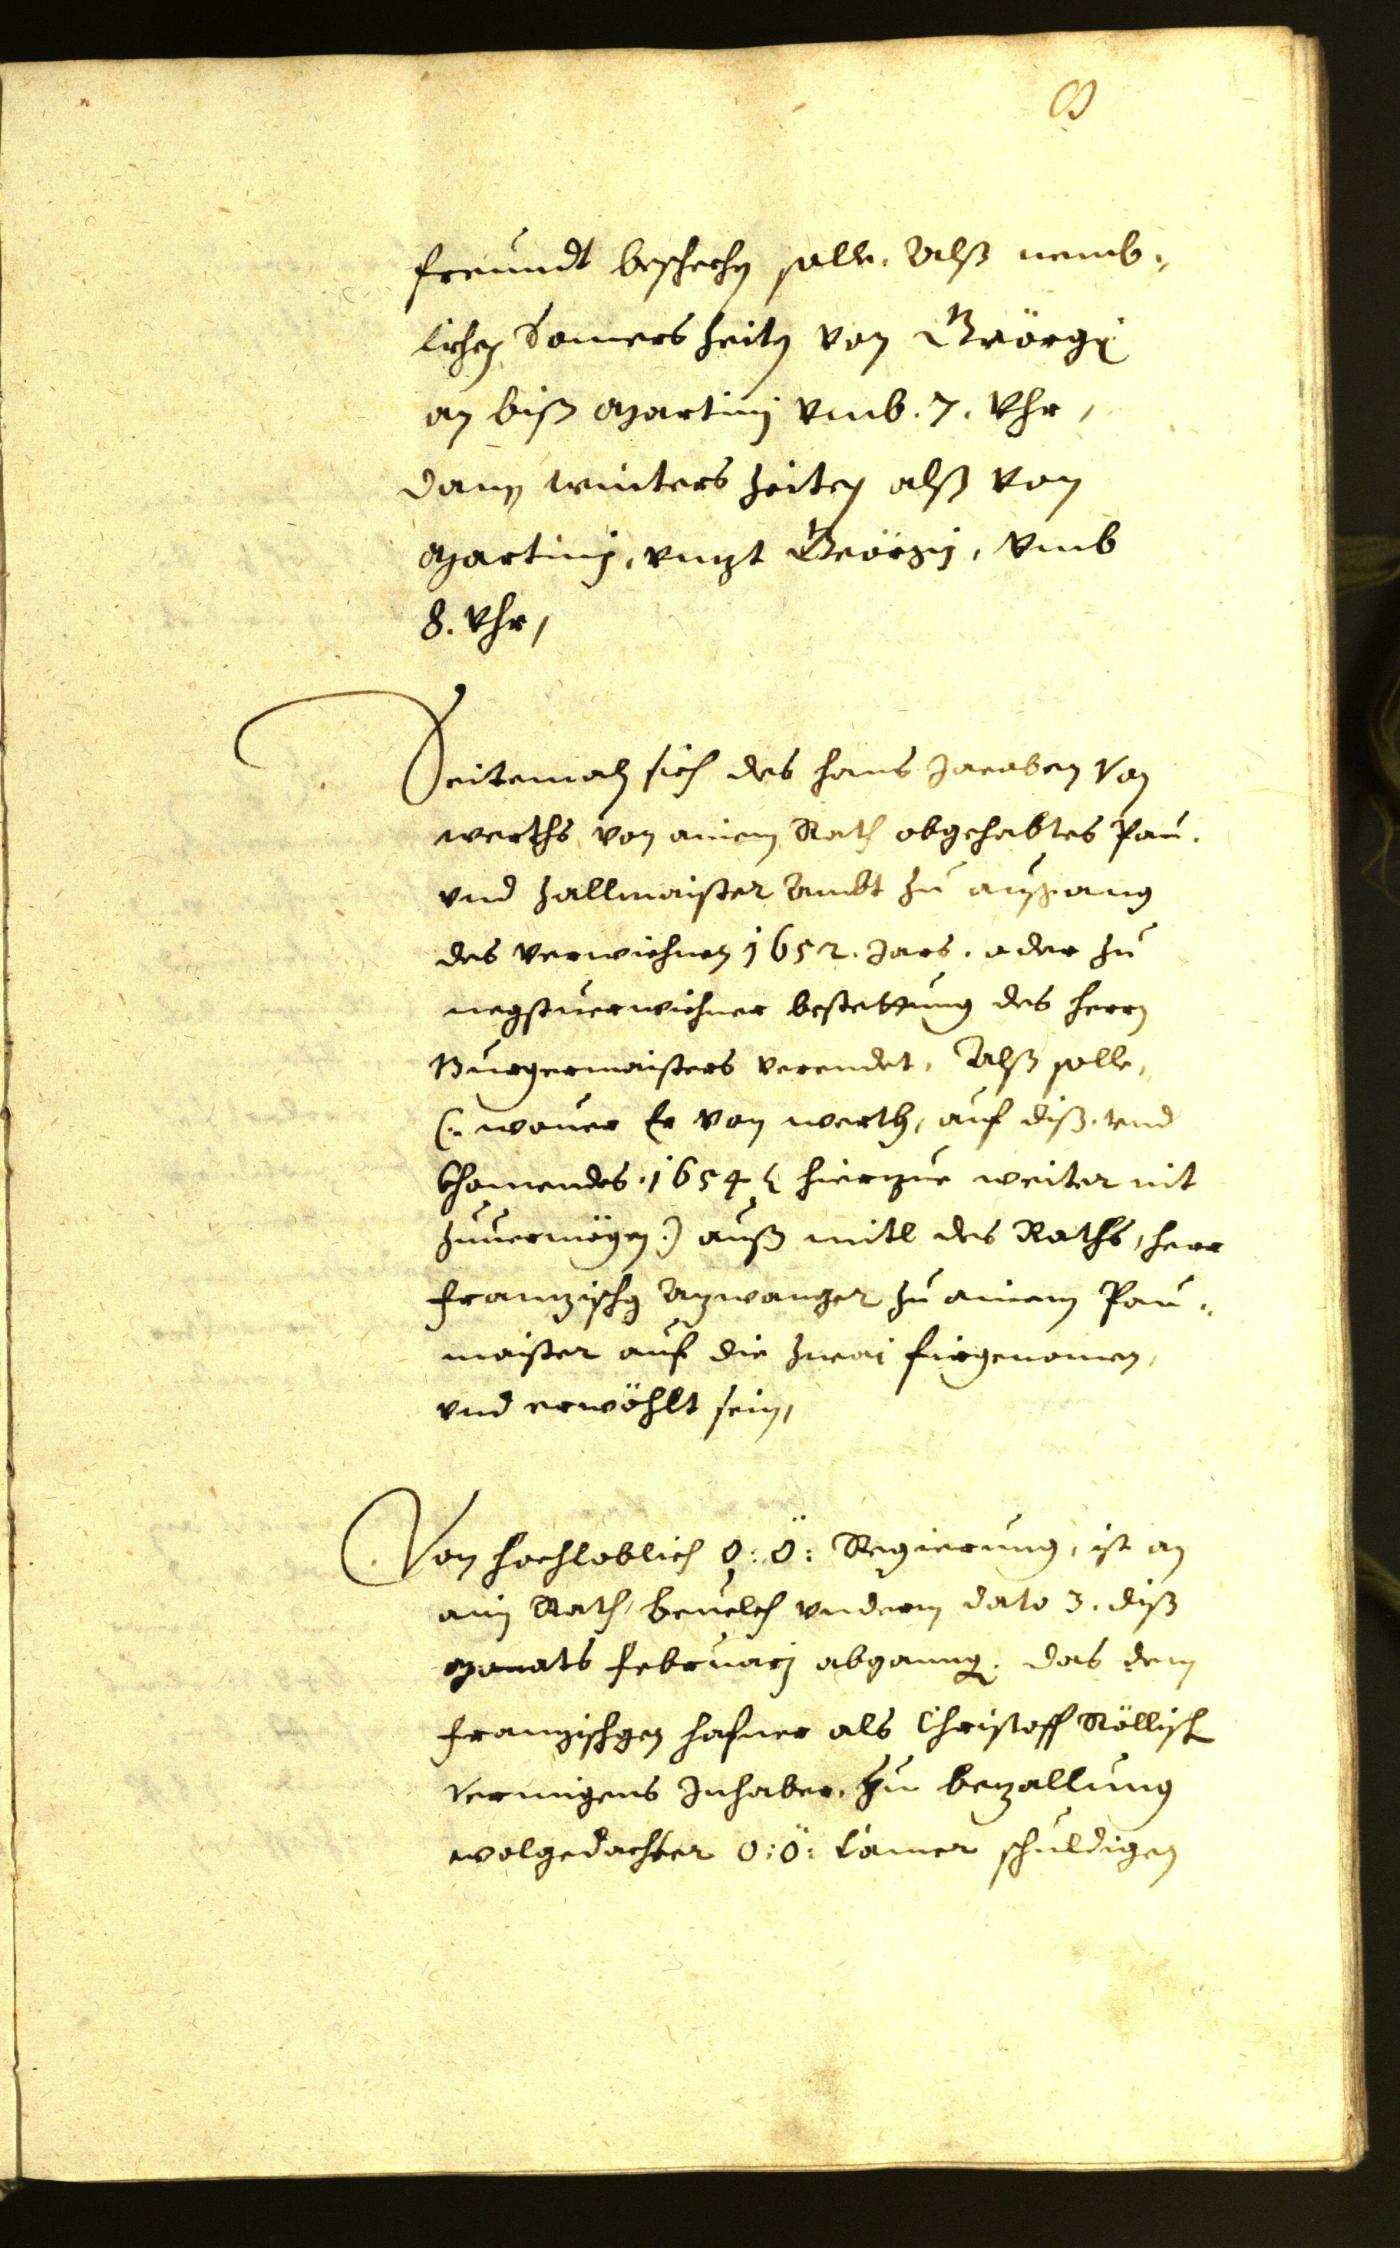 freundt beschechen solle. Alß nemb-
lichen Somers zeiten von Geörgi
an biß Martinj vmb. 7. Vhr,
dann winters zeiten alß von
Martinj, vnzt Geörgij, vmb
8. Vhr,
Seitemaln sich des Hans Jacoben Von
werths von ainem Rath obgehabtes Pau-
vnd Zallmaister Ambt zu außgang
des verwichnen 1652. Jars. oder zu
negstuerwichner bestettung des herrn
Burgermaisters verendet, Alß solle,
(: wouer Er von werth, auf diß. vnd
khomendes. 1654 hierzue weiter nit
zuuermögen:) auß mitl des Raths, herr
Franzisch Anwanger zu ainem Pau-
maister auf die zwai firgenomen,
vnd erwöhlt sein,
Von hochloblich O: Ö: Regierung, ist an
ain Rath, beuelch vnderm dato 3. diß
Monats Februarj abgangen. das dem
Franzischgen Hafner als Christoff Röllisch
vermigens Inhaber. zu bezallung
wolgedachter O: Ö: Camer schuldigen